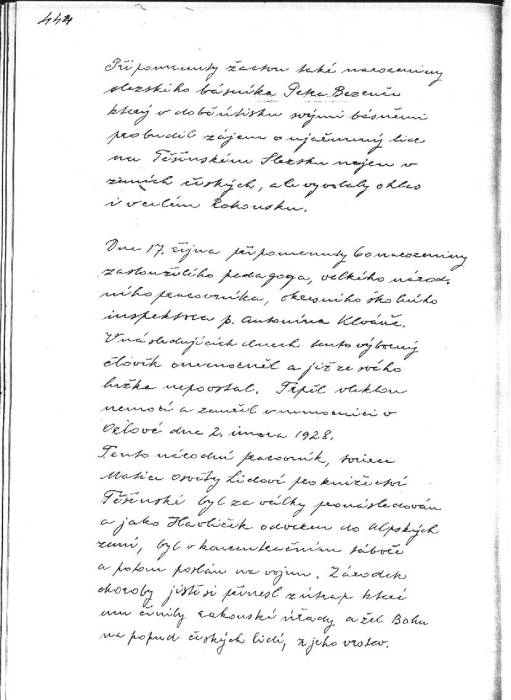 442
Připomenuty žactvu také narozeniny
slezského básníka Petra Bezruče
který v době útisku svými básněmi
probudil zájem o ujařmený lid
na Těšínském Slezsku nejen v
zemích českých, ale vyvolaly ohlas
i v celém Rakousku.
Dne 17. října připomenuty 60 narozeniny
zasloužilého pedagoga, velkého národ-
ního pracovníka, okresního školního
inspektora p. Antonína Klváně.
V následujících dnech tento výborný
člověk onemocněl a již ze svého
lůžka nepovstal. Trpěl vleklou
nemocí a zemřel v nemocnici v
Orlové dne 2. února 1928.
Tento národní pracovník,
Matice Osvěty Lidové pro knížectví
Těšínské byl za války pronásledován
a jako Havlíček odvezen do Alpských
zemí, byl v koncentračním táboře
a potom poslán na vojnu. Zárodek
choroby jistě si přinesl z útrap které
mu činily rakouské úřady a žel Bohu
na popud českých lidí, z jeho vrstev.